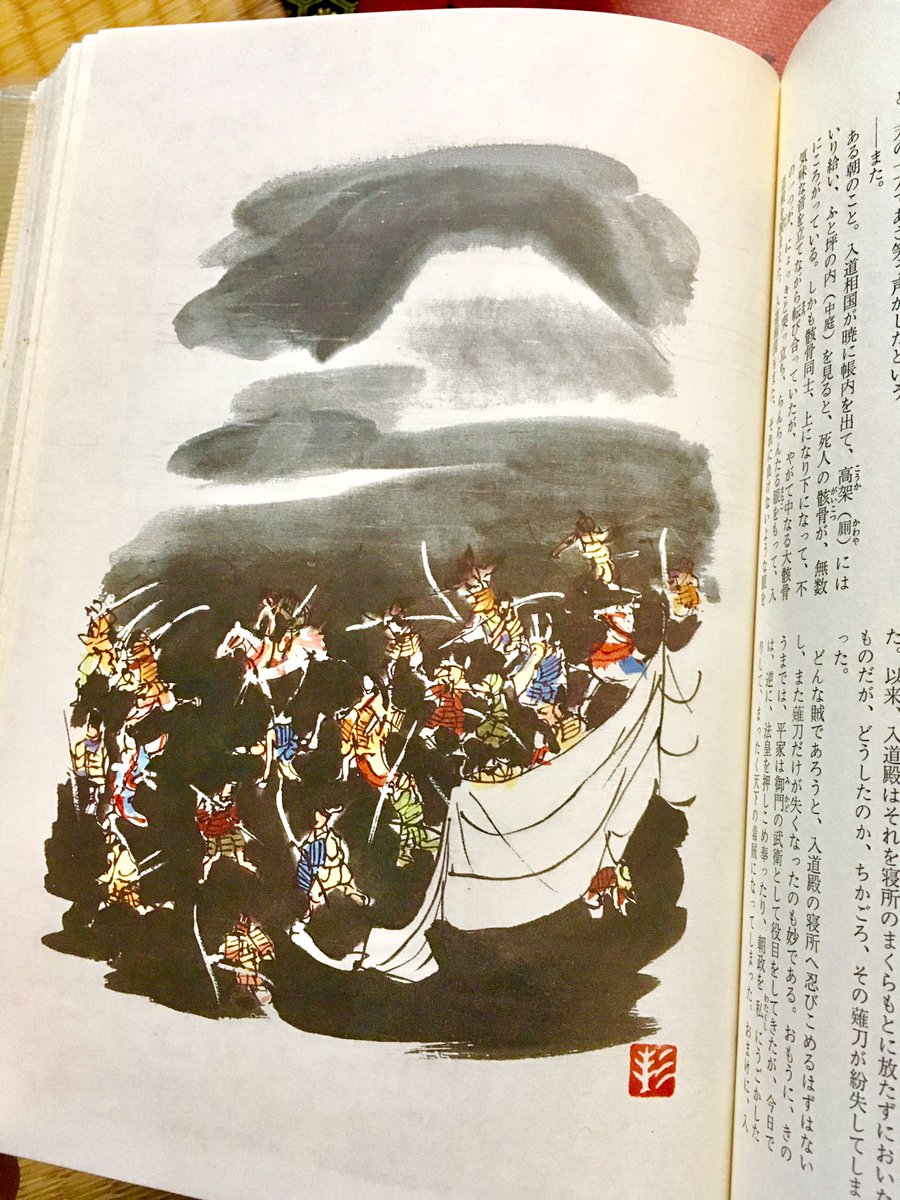 であざ笑う声がしたという
――また。
ある朝のこと。入道相国が暁に帳内を出て、高架（厠）には
いり給い、ふと坪の内（中庭）を見ると、死人の骸骨が、無数
にころがっている。しかも骸骨同士、上になり下になって、不
気味な音を立てながら転び合っていたが、やがて中なる大骸骨
の一つが、によっきと突っ立ち、らんらんたる眼をもって、入
それに負けないような眼を
た。以来、入道殿はそれを寝所のまくらもとに放たずにおいた
ものだが、どうしたのか、ちかごろ、その薙刀が紛失してしま
った。
どんな賊であろうと、入道殿の寝所へ忍びこめるはずはない
し、また薙刀だけが失くなったのも妙である。おもうに、きの
うまでは、平家は御門の武衛として役目をしてきたが、今日で
は、逆に、法皇を押しこめ奉ったり、朝政を私にうごかした
りして、まったく天下の毒賊になってしまった。おまけに、入
杉